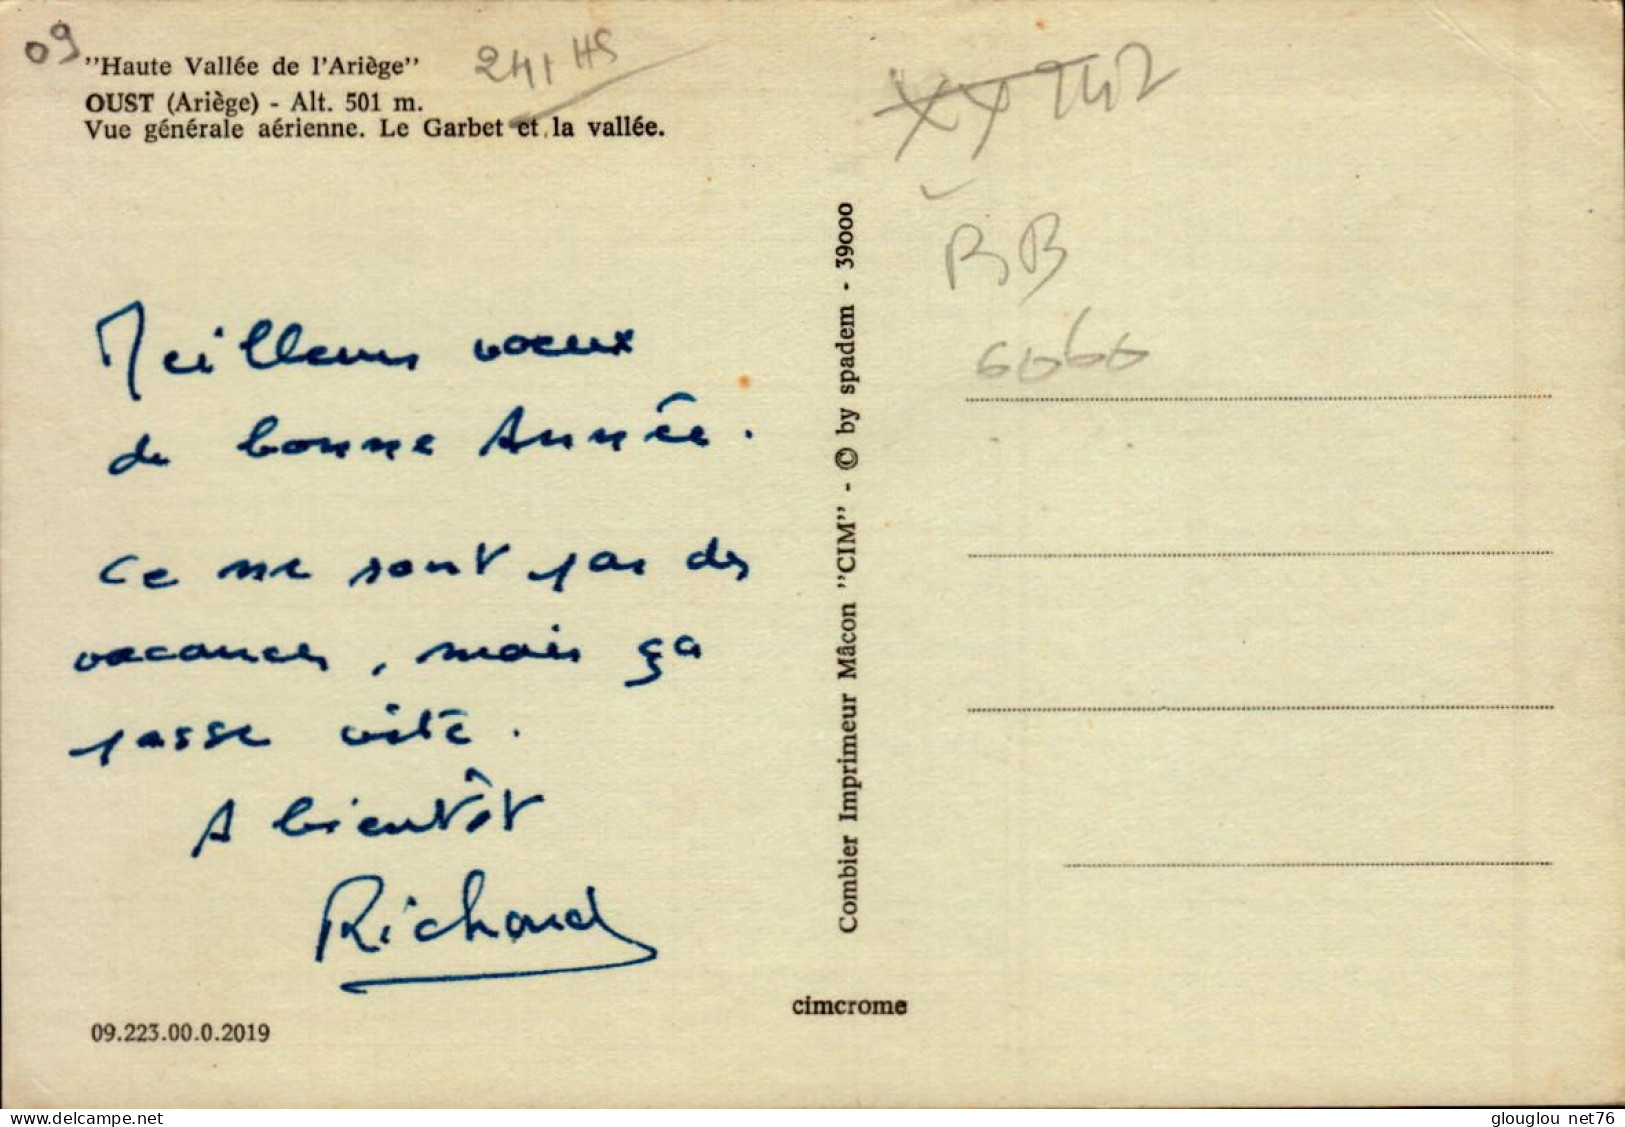 09
"Haute Vallée de l'Ariège"
OUST (Ariège) - Alt. 501 m.
Vue générale aérienne. Le Garbet et la vallée.
241 HS
XX 742
BB
6060
Meilleurs voeux
de bonne Année.
Ce ne sont pas des
vacances, mais ça
passe vite.
A bientôt
Richard
Combier Imprimeur Mâcon "CIM" - © by spadem - 39000
cimcrome
09.223.00.0.2019
www.delcampe.net
glouglou net76